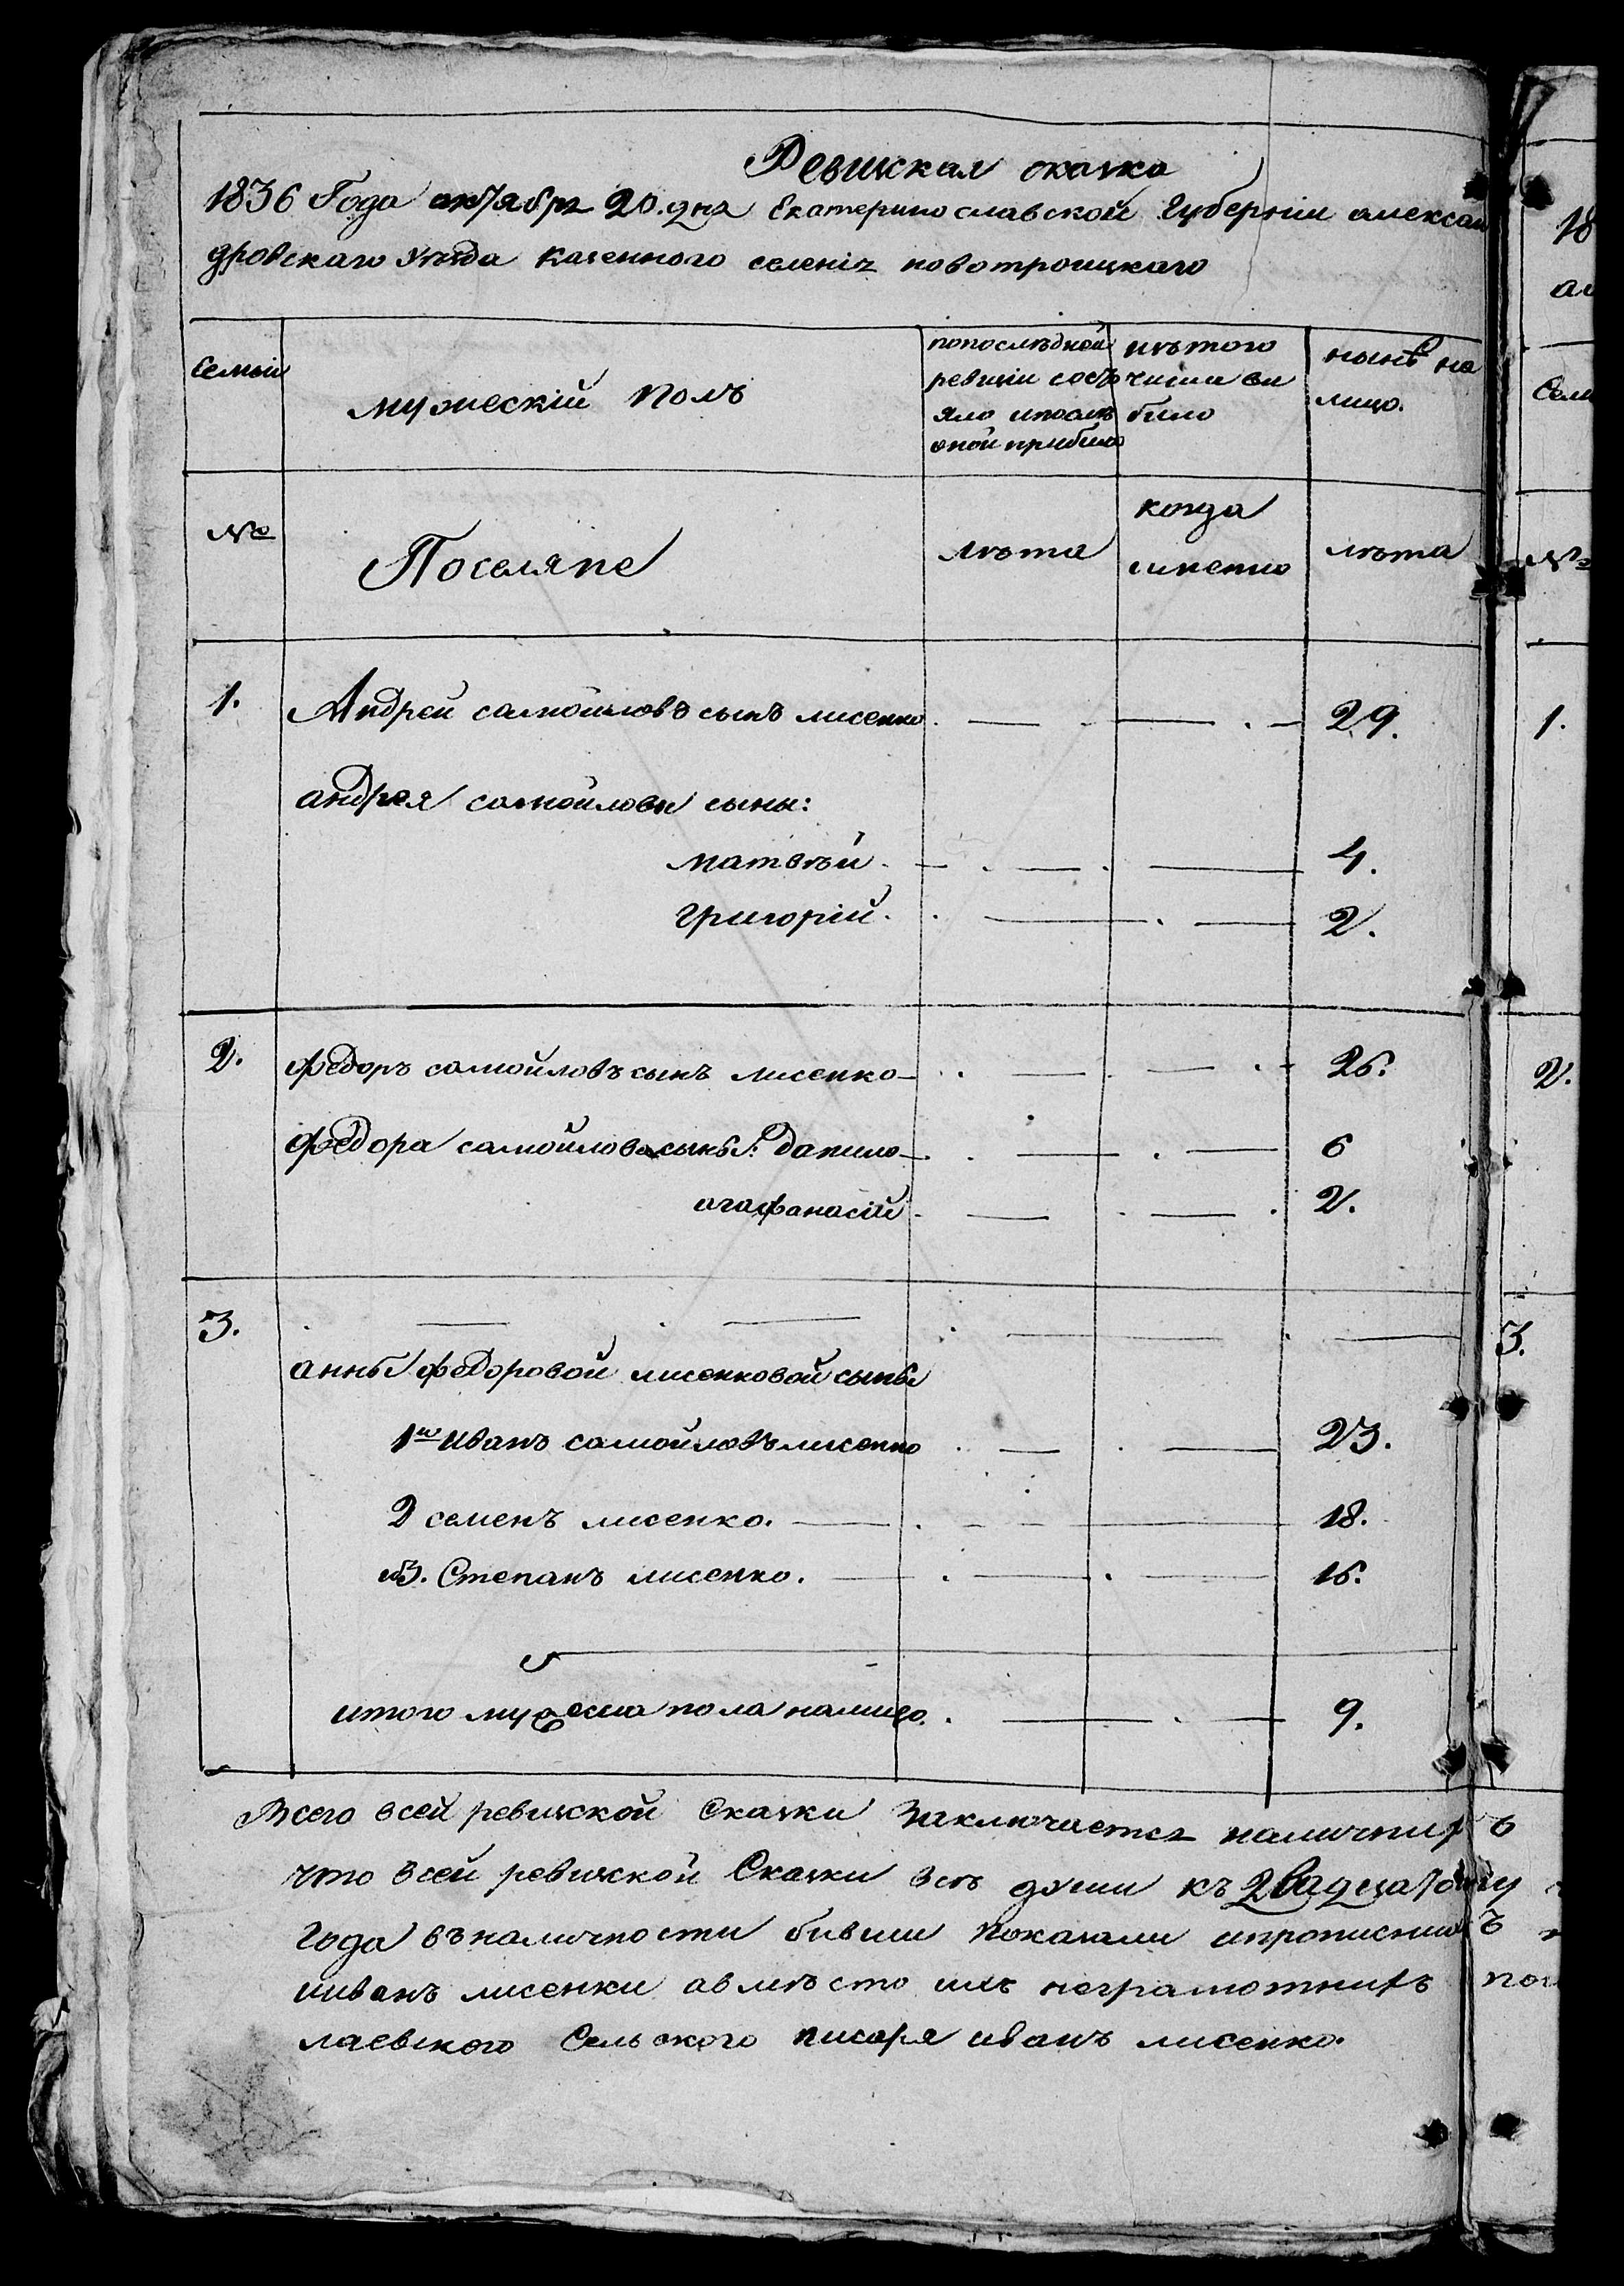 Ревиская скаска
1836 Года октября 20. дня Екатеринославской Губернии алексан
дровскаго уезда казенного селения новотроицкаго
Семьи
мужескій полъ
попоследней
ревизіи состо
яло ипосле
оной прибыло
изъ того
числа вы
было
нынѣ на
лицо.
№
Поселяне
лѣта
когда
именно
лѣта
1. Андрей самойловъ сынъ лисенко. 29.
андрея самойлова сыны:
матвѣй. 4.
григорій. 2.
2. федоръ самойловъ сынъ лисенко 26.
федора самойлова сыны: данило 6
агафанасій 2.
3.
анны федоровой лисенковой сыны
1й иванъ самойловъ лисенко 23.
2 семенъ лисенко. 18.
3. Степанъ лисенко. 16.
итого мужеска пола налицо. 9.
Всего всей ревиской Скаски заключается наличнихъ
что всей ревиской Скаски всѣ души къ двадцатому
Года въ наличности бывши показали ипрописнихъ
ииванъ лисенки авмѣсто ихъ неграмотнихъ
лаевского Сельского писаря иванъ лисенко.
18
Сем
№
1.
2.
3.